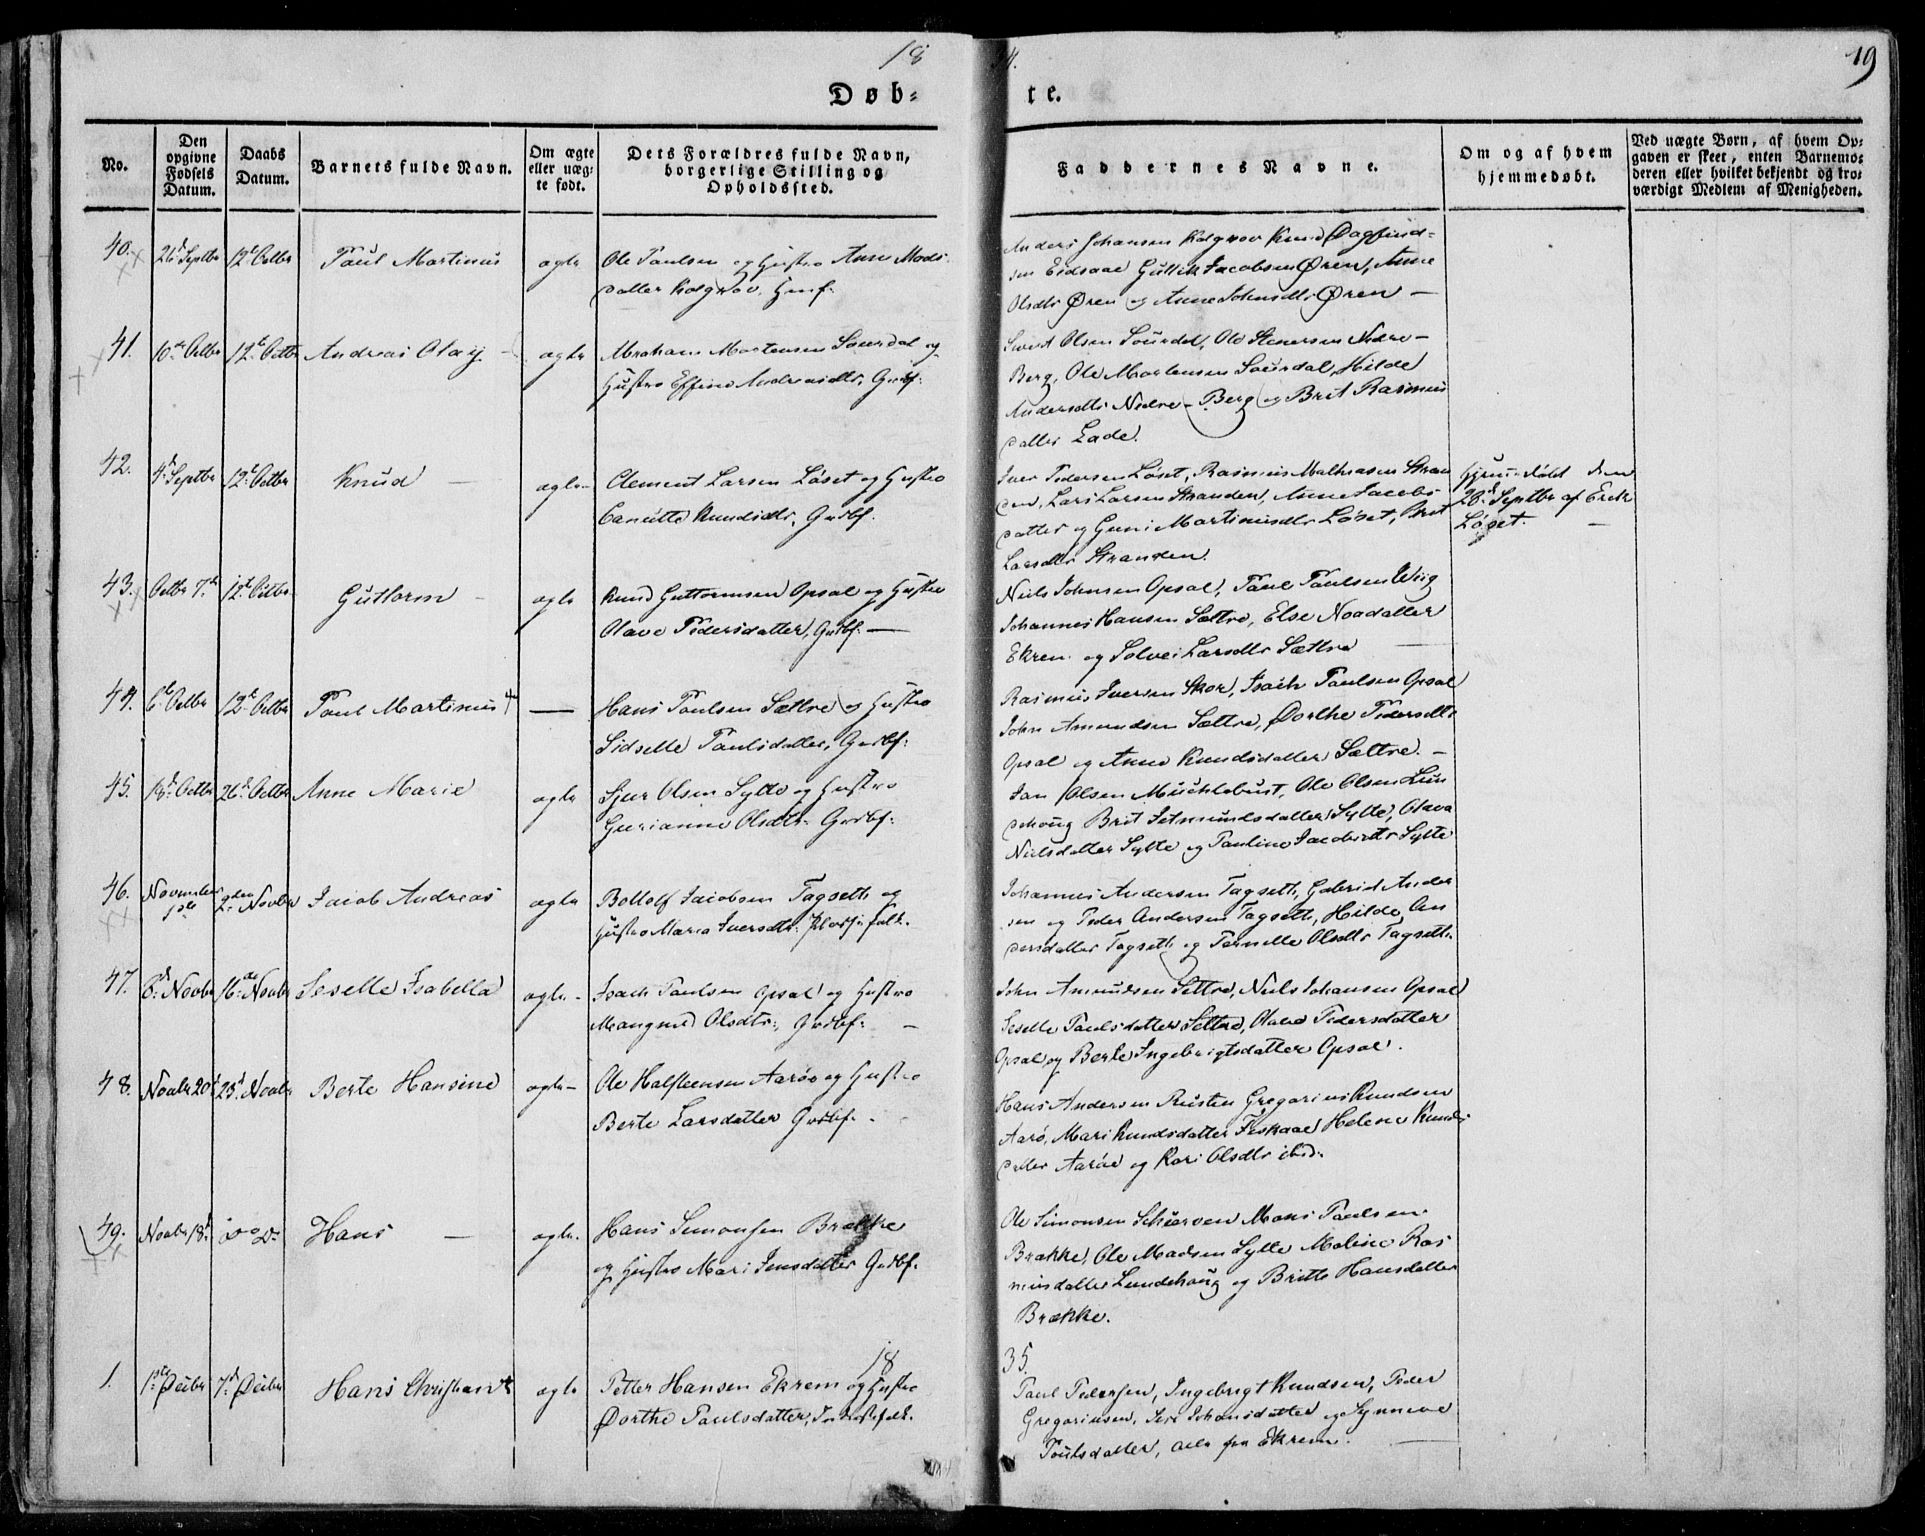 18
34.
19
Døb-
te.
No.
Den opgivne Fødsels Datum.
Daabs Datum.
Barnets fulde Navn.
Om ægte eller uægte født.
Dets Forældres fulde Navn, borgerlige Stilling og Opholdssted.
Faddernes Navne.
Om og af hvem hjemmedøbt.
Ved uægte Børn, af hvem Opgaven er skeet, enten Barnemoderen eller hvilket bekjendt og troværdigt Medlem af Menigheden.
40. 26 Septbr 12te Octbr Paul Martinus ægte Ole Paulsen og Hustro Anne Mads
datter
Anders Johansen Knud Dagfind-
sen Eidsaae Gullik Jacobsen Øren, Anne
Olsdtr Øren og Anne Johnsdtr Øren —
41. 10de Octbr 12te Octbr Andreas Olay ægte Abraham Mortensen Sourdal og
Hustro Effine Andreasdtr, Grdbf.
Sivert Olsen Sourdal, Ole Stenersen Nedre-
Berg, Ole Mortensen Sourdal, Hilde
Andersdtr Nedre-Berg og Brit Rasmus
datter Lade.
42. 4de Septbr 12te Octbr Knud — ægte Clement Larsen Løset og Hustro
Canutte Knudsdtr, Grdbf.
Iver Pedersen Løset, Rasmus Mathiasen Stran
den, Lars Larsen Stranden, Anne Jacobs
datter og Guni Martinusdtr Løset, Brit
Larsdtr Stranden.
Hjemmedøbt den
28d Septbr af Erik
Løset. —
43. Octbr 7de 12te Octbr Guttorm — ægte Knud Guttormsen Opsal og Hustro
Olave Pedersdatter, Grdbf. —
Niels Johnsen Opsal, Paul Paulsen Wiig
Johannes Hansen Sættre, Else Noadatter
Ekren og Solvei Larsdtr Sættre
44. 6te Octbr 12te Octbr Paul Martinus + — Hans Paulsen Sættre og Hustro
Sidselle Paulsdatter, Grdbf.
Rasmus Iversen Skor, Isach Paulsen Opsal
John Amundsen Sættre, Dorthe Pedersdtr
Opsal og Anne Knudsdatter Sættre. —
45. 18d Octbr 26d Octbr Anne Marie ægte Sjur Olsen Sylte og Hustro
Gurianne Olsdtr. Grdbf.
Jan Olsen Muchlebust, Ole Olsen Lun
dehoug Brit Setmundsdatter Sylte, Olava
Nielsdatter Sylte og Pauline Jacobsdtr Sylte
46. November 1ste 2den Novbr Jacob Andreas ægte Bottolf Jacobsen Tagseth og
Hustro Maria Iversdtr. Pladsfolk.
Johannes Andersen Tagseth, Gabriel Ander
sen og Peder Andersen Tagseth, Hilde An
dersdatter Tagseth og Pernelle Olsdtr Tagseth.
47. 6d Novbr 16de Novbr Seselle Isabella ægte - Isach Paulsen Opsal og Hustro
Mangnild Olsdtr:, Grdbf: —
John Amundsen Settre, Niels Johansen Opsal
Seselle Paulsdatter Settre, Olave Pedersdatter
Opsal og Berte Ingebrigtsdatter Opsal.
48. Novbr 20d 23d Novbr Berte Hansine ægte - Ole Halsteensen Aarøe og Hustro
Berte Larsdatter Grdbf. -
Hans Andersen Rusten Gregorius Knudsen
Aarø, Mari Knudsdatter Fiskaae Helene Knuds
datter Aarøe og Kari Olsdtr ibid.
49. Novbr 18d do do Hans — ægte. Hans Simonsen Brække
og Hustro Mari Jensdatter Grdbf.
Ole Simonsen Mons Paulsen
Brække, Ole Madsen Sylte Maline Ras
musdatter Lundehoug og Britte Hansdatter
Brække.
18
35.
1. 1ste Decbr 7d Decbr Hans Christian ægte Petter Hansen Ekrem og Hustro
Dorthe Paulsdatter,
Paul Pedersen, Ingebrigt Knudsen, Peder
Gregoriusen, Siri Johansdatter og Synneve
Poulsdatter, alle fra Ekrem. —